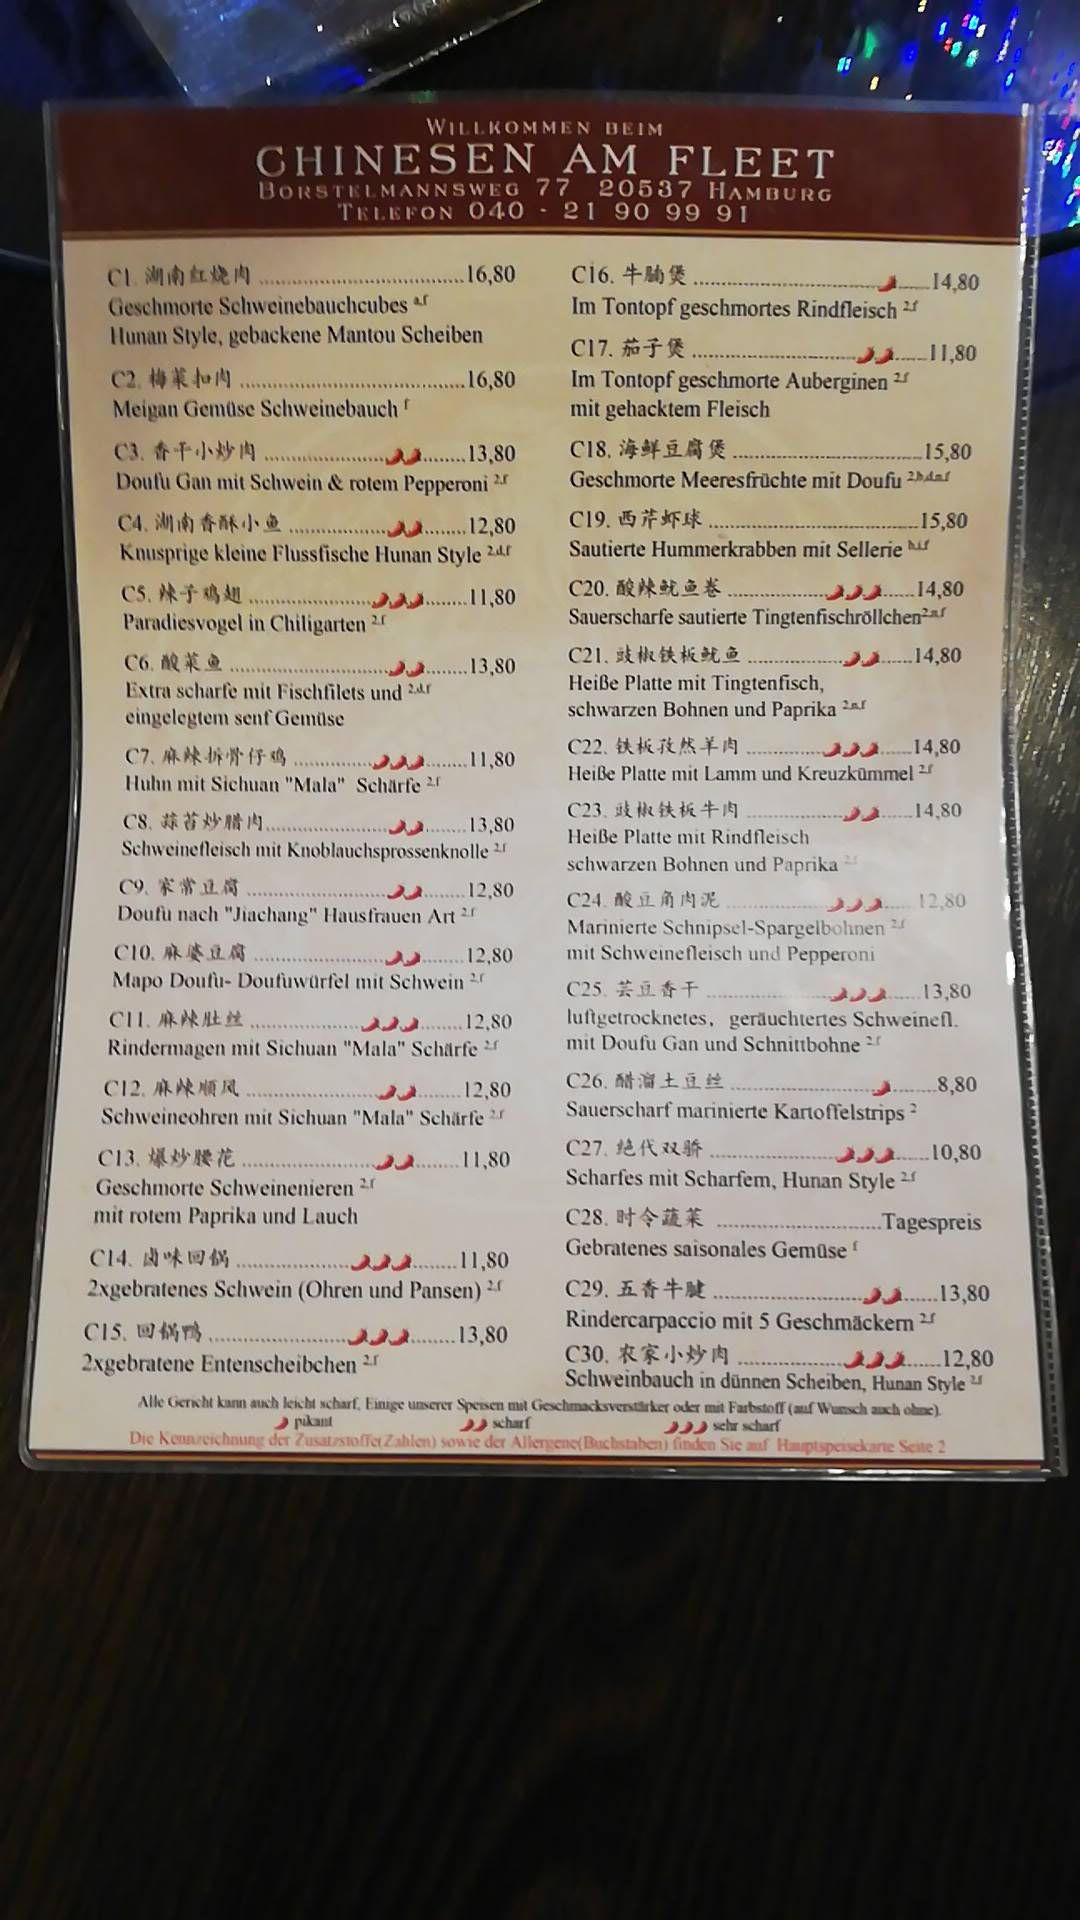 WILLKOMMEN BEIM
CHINESEN AM FLEET
BORSTELMANNSWEG 77 20537 HAMBURG
TELEFON 040 - 21 90 99 91
C1. 湖南红烧肉 ......16,80
Geschmorte Schweinebauchcubes a,f
Hunan Style, gebackene Mantou Scheiben
C2. 梅菜扣肉 ......16,80
Meigan Gemüse Schweinebauch f
C3. 香干小炒肉 ......13,80
Doufu Gan mit Schwein & rotem Pepperoni 2,f
C4. 湖南香酥小鱼 ......12,80
Knusprige kleine Flussfische Hunan Style 2,d,f
C5. 辣子鸡翅 ......11,80
Paradiesvogel in Chiligarten 2,f
C6. 酸菜鱼 ......13,80
Extra scharfe mit Fischfilets und 2,d,f
eingelegtem senf Gemüse
C7. 麻辣拆骨仔鸡 ......11,80
Huhn mit Sichuan "Mala" Schärfe 2,f
C8. 蒜苔炒腊肉 ......13,80
Schweinefleisch mit Knoblauchsprossenknolle 2,f
C9. 家常豆腐 ......12,80
Doufu nach "Jiachang" Hausfrauen Art 2,f
C10. 麻婆豆腐 ......12,80
Mapo Doufu- Doufuwürfel mit Schwein 2,f
C11. 麻辣肚丝 ......12,80
Rindermagen mit Sichuan "Mala" Schärfe 2,f
C12. 麻辣顺风 ......12,80
Schweineohren mit Sichuan "Mala" Schärfe 2,f
C13. 爆炒腰花 ......11,80
Geschmorte Schweinenieren 2,f
mit rotem Paprika und Lauch
C14. 卤味回锅 ......11,80
2xgebratenes Schwein (Ohren und Pansen) 2,f
C15. 回锅鸭 ......13,80
2xgebratene Entenscheibchen 2,f
C16. 牛腩煲 ......14,80
Im Tontopf geschmortes Rindfleisch 2,f
C17. 茄子煲 ......11,80
Im Tontopf geschmorte Auberginen 2,f
mit gehacktem Fleisch
C18. 海鲜豆腐煲 ......15,80
Geschmorte Meeresfrüchte mit Doufu 2,b,d,n,f
C19. 西芹虾球 ......15,80
Sautierte Hummerkrabben mit Sellerie b,i,f
C20. 酸辣鱿鱼卷 ......14,80
Sauerscharfe sautierte Tingtenfischröllchen 2,n,f
C21. 豉椒铁板鱿鱼 ......14,80
Heiße Platte mit Tingtenfisch,
schwarzen Bohnen und Paprika 2,n,f
C22. 铁板孜然羊肉 ......14,80
Heiße Platte mit Lamm und Kreuzkümmel 2,f
C23. 豉椒铁板牛肉 ......14,80
Heiße Platte mit Rindfleisch
schwarzen Bohnen und Paprika 2,f
C24. 酸豆角肉泥 ......12,80
Marinierte Schnipsel-Spargelbohnen 2,f
mit Schweinefleisch und Pepperoni
C25. 芸豆香干 ......13,80
luftgetrocknetes, geräuchtertes Schweinefl.
mit Doufu Gan und Schnittbohne 2,f
C26. 醋溜土豆丝 ......8,80
Sauerscharf marinierte Kartoffelstrips 2
C27. 绝代双骄 ......10,80
Scharfes mit Scharfem, Hunan Style 2,f
C28. 时令蔬菜 ......Tagespreis
Gebratenes saisonales Gemüse f
C29. 五香牛腱 ......13,80
Rindercarpaccio mit 5 Geschmäckern 2,f
C30. 农家小炒肉 ......12,80
Schweinbauch in dünnen Scheiben, Hunan Style 2,f
Alle Gericht kann auch leicht scharf, Einige unserer Speisen mit Geschmacksverstärker oder mit Farbstoff (auf Wunsch auch ohne).
pikant scharf sehr scharf
Die Kennzeichnung der Zusatzstoffe(Zahlen) sowie der Allergene(Buchstaben) finden Sie auf Hauptspeisekarte Seite 2